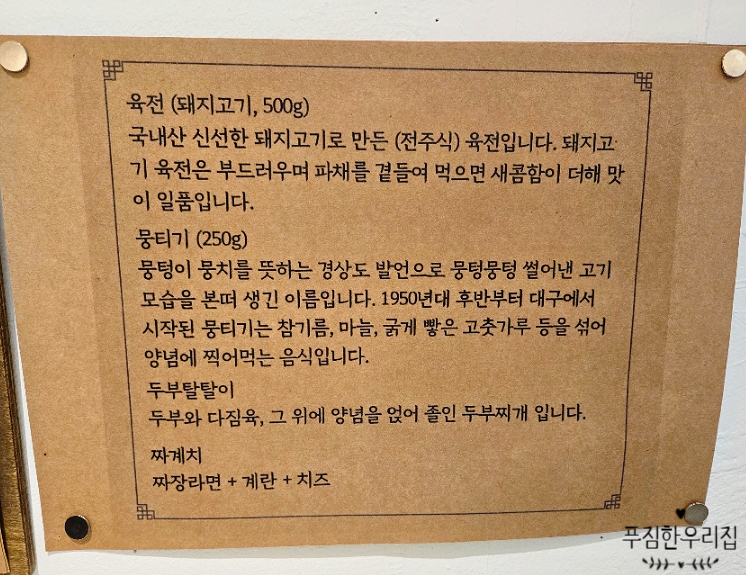 육전 (돼지고기, 500g)
국내산 신선한 돼지고기로 만든 (전주식) 육전입니다. 돼지고
기 육전은 부드러우며 파채를 곁들여 먹으면 새콤함이 더해 맛
이 일품입니다.
뭉티기 (250g)
뭉텅이 뭉치를 뜻하는 경상도 발언으로 뭉텅뭉텅 썰어낸 고기
모습을 본떠 생긴 이름입니다. 1950년대 후반부터 대구에서
시작된 뭉티기는 참기름, 마늘, 굵게 빻은 고춧가루 등을 섞어
양념에 찍어먹는 음식입니다.
두부탈탈이
두부와 다짐육, 그 위에 양념을 얹어 졸인 두부찌개 입니다.
짜계치
짜장라면 + 계란 + 치즈
푸짐한우리집